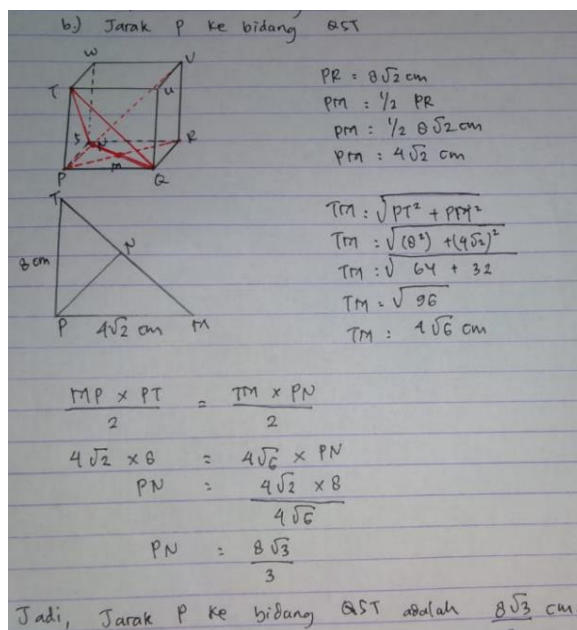 b.) Jarak P ke bidang QST
W
V
T
U
S
N
R
P
M
Q
PR = 8√2 cm
PM : 1/2 PR
PM : 1/2 8√2 cm
PM : 4√2 cm
T
8 cm
N
P
4√2 cm
M
TM : √PT² + PM²
TM : √(8²) + (4√2)²
TM : √64 + 32
TM = √96
TM : 4√6 cm
MP x PT / 2 = TM x PN / 2
4√2 x 8 = 4√6 x PN
PN : 4√2 x 8 / 4√6
PN : 8√3 / 3
Jadi, Jarak P ke bidang QST adalah 8√3 cm